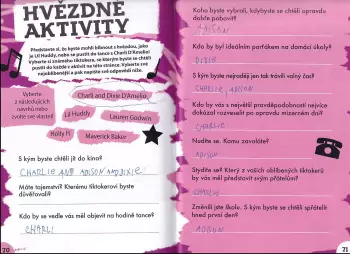 HVĚZDNÉ
AKTIVITY
Představte si, že byste mohli blbnout s hvězdou, jako
je Lil Huddy, nebo se pustit do tance s Charli D'Amelio!
Vyberte si známého tiktokera, se kterým byste se chtěli
pustit do každé z aktivit na této stránce. Vyberte své
nejoblíbenější a pak napište své odpovědi níže.
Vyberte
z následujících
návrhů nebo
zvolte své vlastní!
Charli and Dixie D'Amelio
Lil Huddy
Lauren Godwin
Holly H
Maverick Baker
S kým byste chtěli jít do kina?
CHARLIE AND ADISON AND DIXIE
Máte tajemství? Kterému tiktokerovi byste
důvěřovali?
Kdo by se vedle vás měl objevit na hodině tance?
CHARLI
70
Koho byste vybrali, kdybyste se chtěli opravdu
dobře pobavit?
ADISON
Kdo by byl ideálním parťákem na domácí úkoly?
DIXIE
S kým byste nejraději jen tak trávili volný čas?
CHARLIE, ADISON
Kdo by vás s největší pravděpodobností nejvíce
dokázal rozveselit po opravdu mizerném dni?
CHARLIE
Nudíte se. Komu zavoláte?
ADISON
Stydíte se? Který z vašich oblíbených tiktokerů
by vás měl představit svým přátelům?
CHARLIE
Změnili jste školu. S kým byste se chtěli spřátelit
hned první den?
ADISON
71